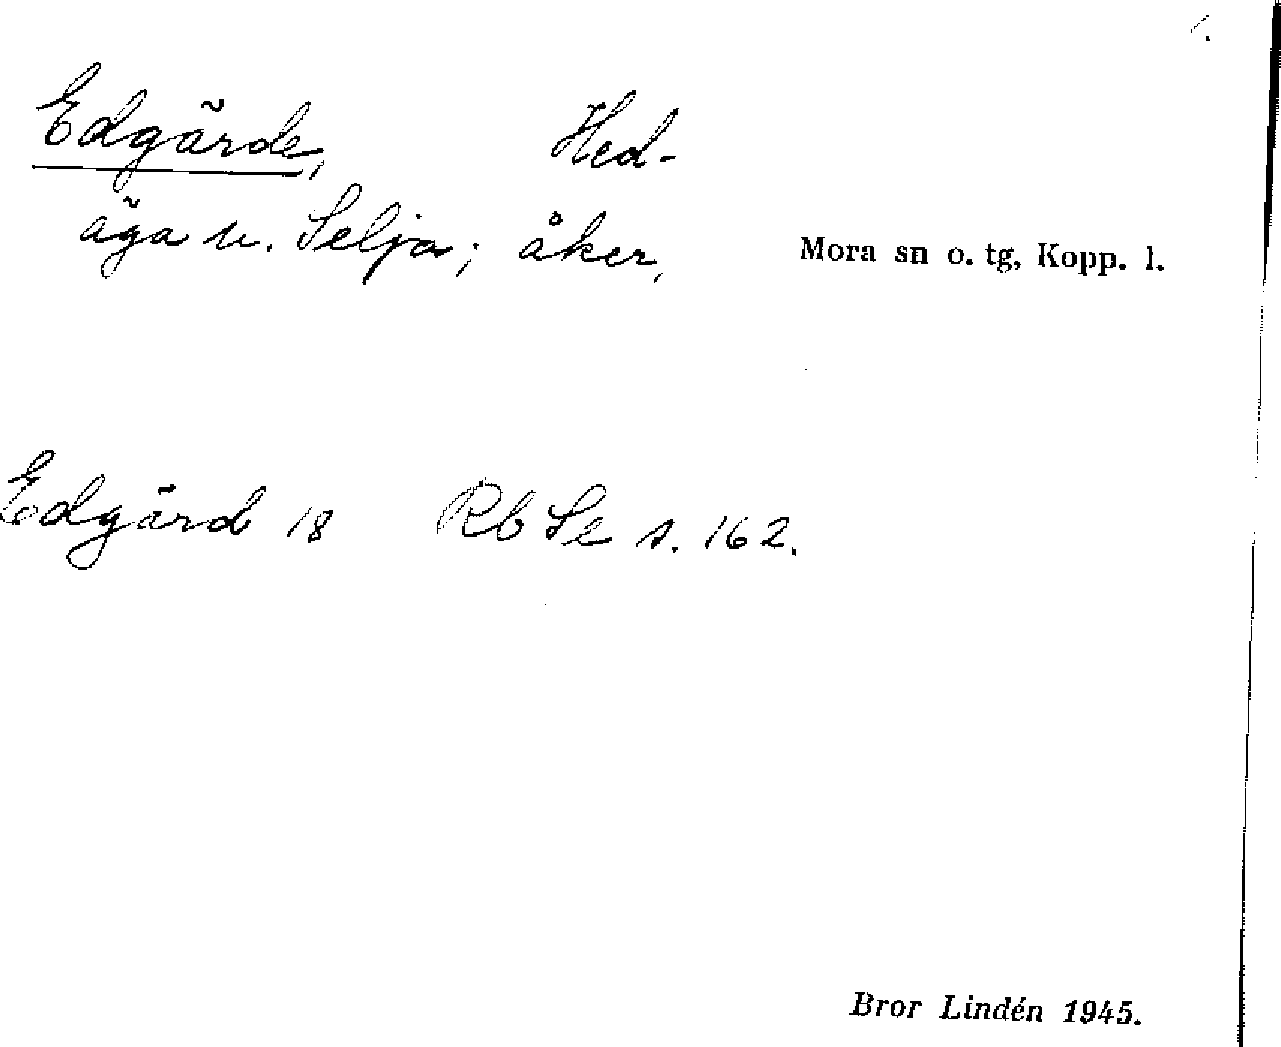 Edgärde, Hed-
äga u. Selja; åker, Mora sn o. tg, Kopp. l.
Edgärd 18 Rb Se s. 162.
Bror Lindén 1945.